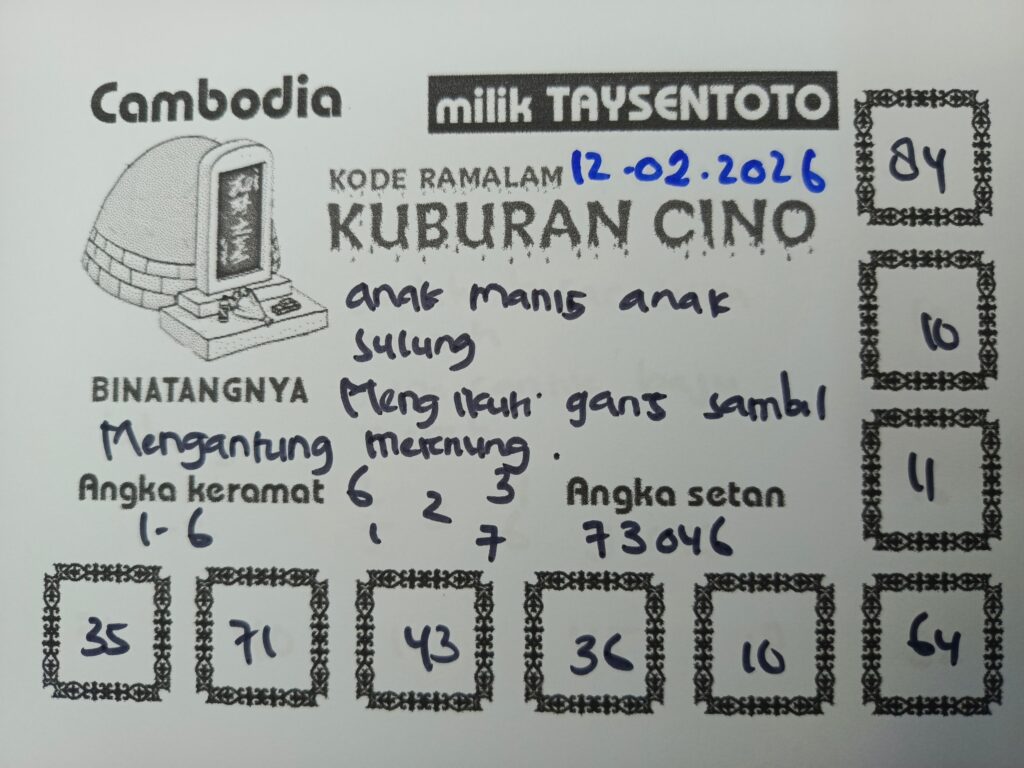 Cambodia
milik TAYSENTOTO
KODE RAMALAM 12.02.2026
KUBURAN CINO
anak manis anak
sulung
BINATANGNYA
Mengikuti ganis sambil
Mengantung merenung.
Angka keramat
1-6
6 2 3
1 7
Angka setan
73046
84
10
11
35 71 43 36 10 64